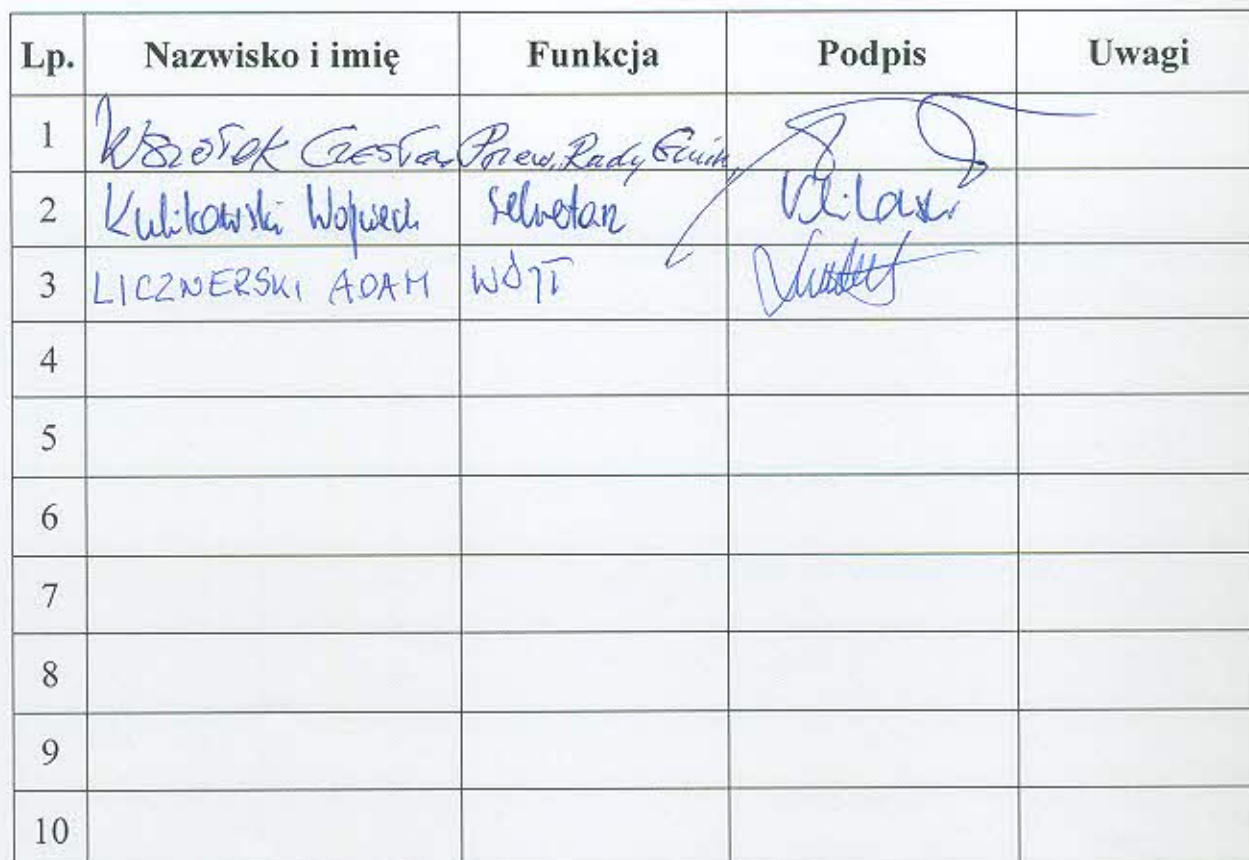 Lp. Nazwisko i imię Funkcja Podpis Uwagi
1 Wszołek Czesław Przew. Rady Gmin
2 Kulikowski Wojciech sekretarz
3 LICZNERSKI ADAM WÓJT
4
5
6
7
8
9
10